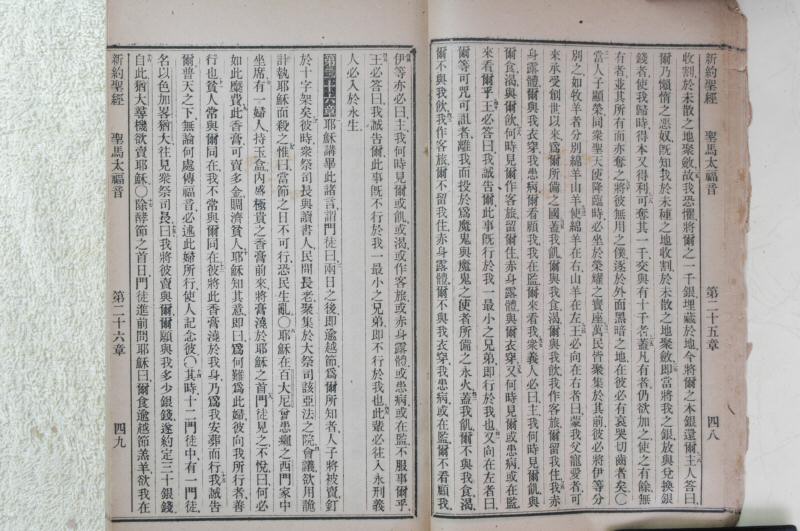 新約聖經 聖馬太福音 第二十五章 四八
收割於未散之地聚斂故我恐懼將爾之一千銀埋藏於地今將爾之本銀還爾主人答曰
爾乃懶惰之惡奴既知我於未種之地收割於未散之地聚斂即當將我之銀放與兌換銀
錢者使我歸時得本又得利可奪其一千交與有十千者蓋凡有者仍欲加之使之有餘無
有者並其所有而亦奪之將彼無用之僕逐於外面黑暗之地在彼必有哀哭切齒者矣〇
當人子顯榮同衆聖天使降臨時必坐於榮耀之寶座萬民皆聚集於其前彼必將伊等分
別之如牧羊者分別綿羊山羊使綿羊在右山羊在左王必向在右者曰蒙我父寵愛者可
來承受創世以來爲爾所備之國蓋我飢爾與我食渴爾與我飲我作客旅爾留我住我赤
身露體爾與我衣穿我患病爾看顧我我在監爾來看我衆義人必曰主我何時見爾飢與
爾食渴與爾飲何時見爾作客旅留爾住赤身露體與爾衣穿又何時見爾或患病或在監
來看爾乎王必答曰我誠告爾此事既行於我一最小之兄弟即行於我也又向在左者曰
爾等可咒可詛者離我而投於爲魔鬼與魔鬼之使者所備之永火蓋我飢爾不與我食渴
爾不與我飲我作客旅爾不留我住赤身露體爾不與我衣穿我患病或在監爾不看顧我
伊等亦必曰主我何時見爾或飢或渴或作客旅或赤身露體或患病或在監不服事爾乎
王必答曰我誠告爾此事既不行於我一最小之兄弟即不行於我也此輩必往入永刑義
人必入於永生
第二十六章耶穌講畢此諸言謂門徒曰兩日之後即逾越節爲爾所知者人子將被賣釘
於十字架矣彼時衆祭司長與讀書人民間長老聚集於大祭司該亞法之院會議欲用詭
計執耶穌而殺之惟曰當節之日不可行恐民生亂〇耶穌在百大尼曾患癩之西門家中
坐席有一婦人持玉盒內盛極貴之香膏前來將膏澆於耶穌之首門徒見之不悅曰何必
如此糜費此香膏可賣多金賙濟貧人耶穌知其意即曰爲何難爲此婦彼向我所行者善
行也貧人常與爾同在我不常與爾同在彼將此香膏澆於我身乃爲我安葬而行我誠告
爾普天之下無論何處傳福音必述此婦所行使人記念彼〇其時十二門徒中有一門徒
名以色加畧猶大往見衆祭司長曰我將彼賣與爾爾願與我多少銀錢遂約定三十銀錢
自此猶大尋機欲賣耶穌〇除酵節之首日門徒進前問耶穌曰爾食逾越節羔羊欲我在
新約聖經 聖馬太福音 第二十六章 四九